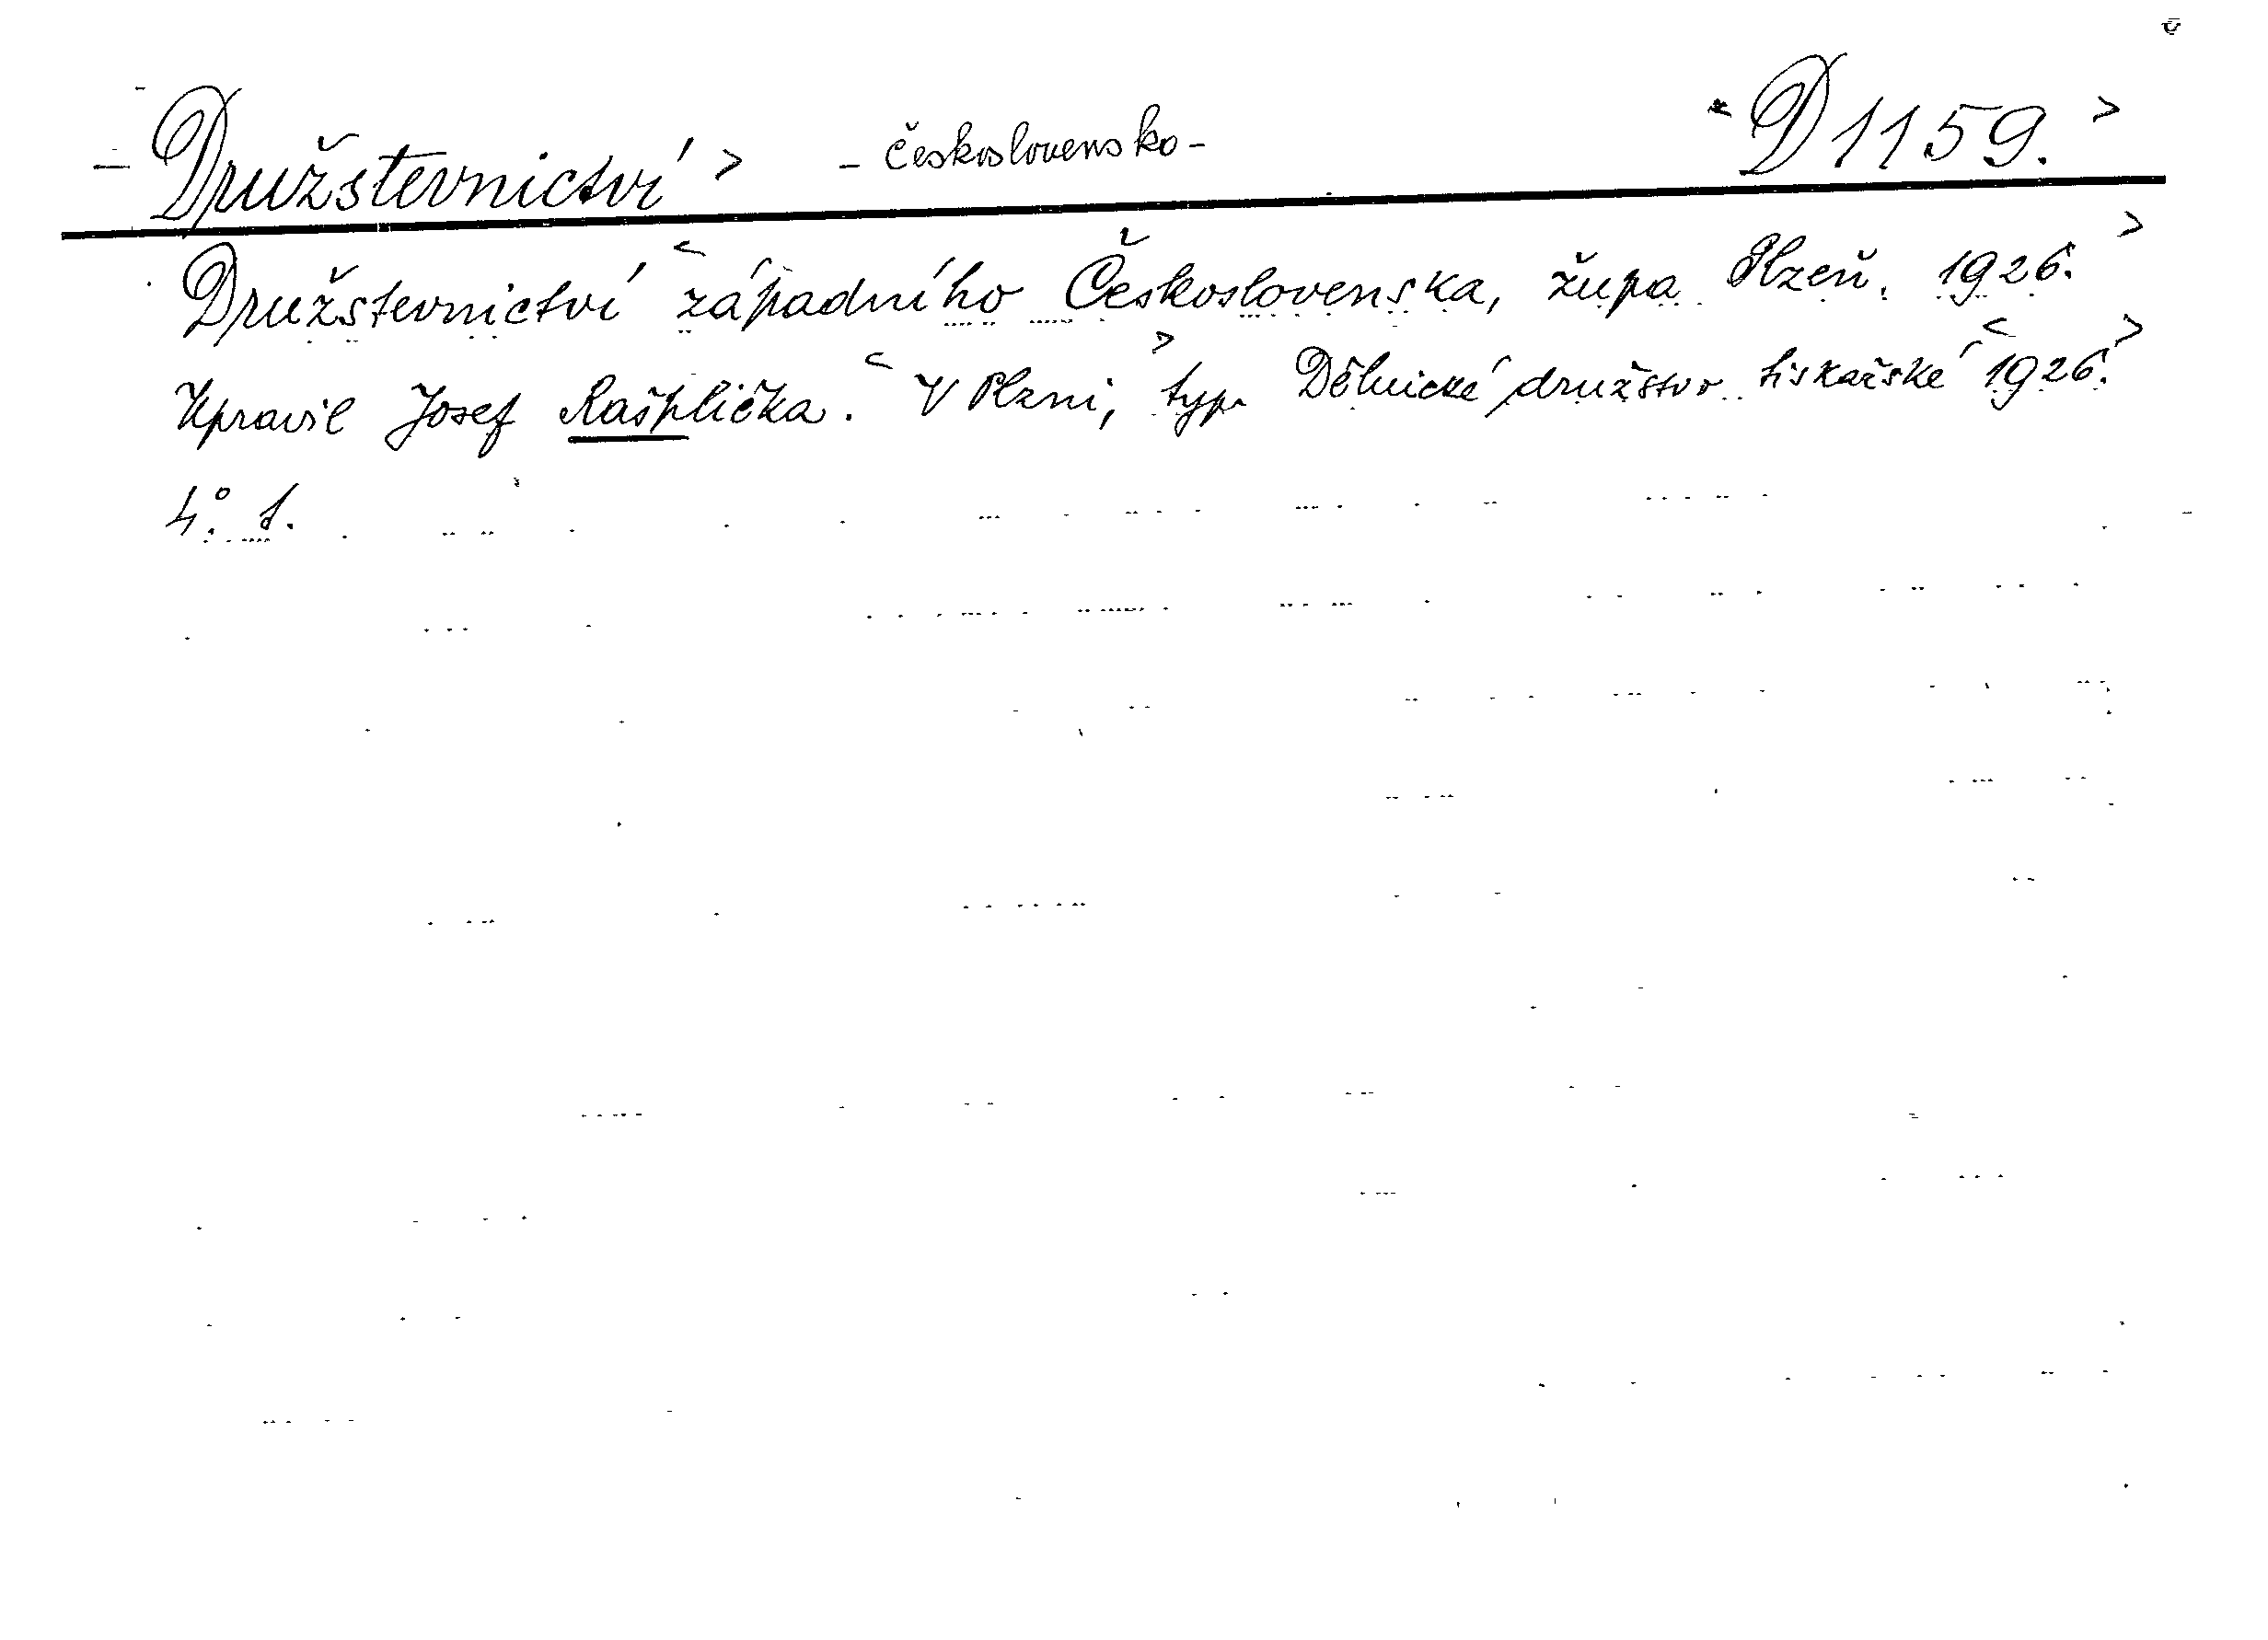 Družstevnictví > - Československo - D 1159. >
Družstevnictví < západního Československa, župa Plzeň. 1926. >
Upravil Josef Rašplička. < V Plzni, > typ. Dělnické družstvo tiskařské < 1926. >
4°. 1.